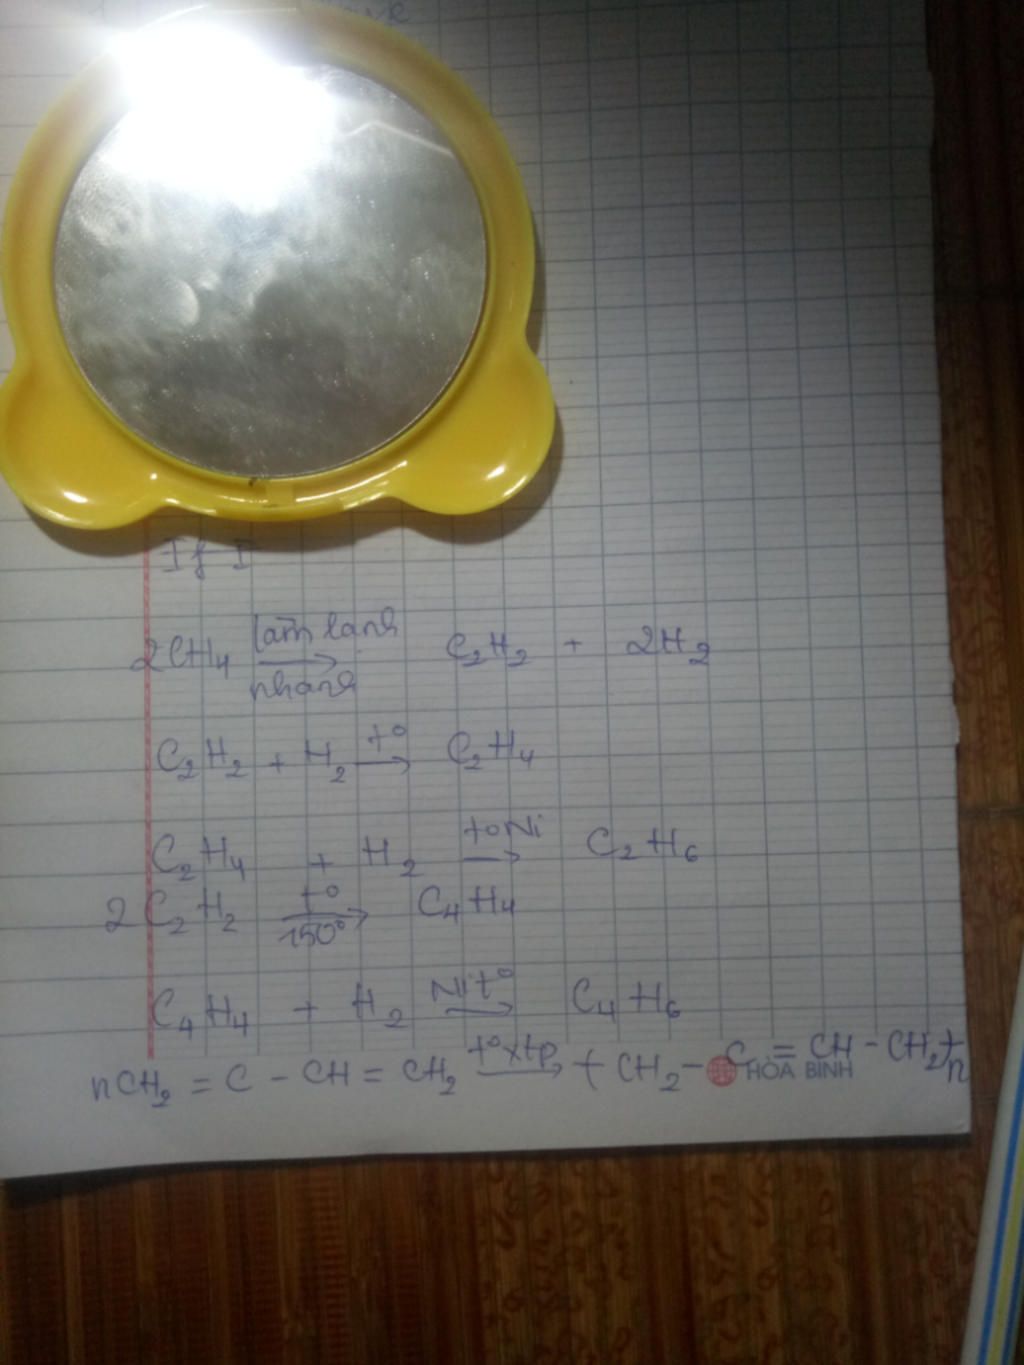 If I
2CH4 làm lạnh nhanh → C2H2 + 2H2
C2H2 + H2 t° → C2H4
C2H4 + H2 t° Ni → C2H6
2C2H2 t° 150° → C4H4
C4H4 + H2 Ni t° → C4H6
nCH2 = C - CH = CH2 t° xt p → (CH2 - C = CH - CH2)n
HÒA BÌNH